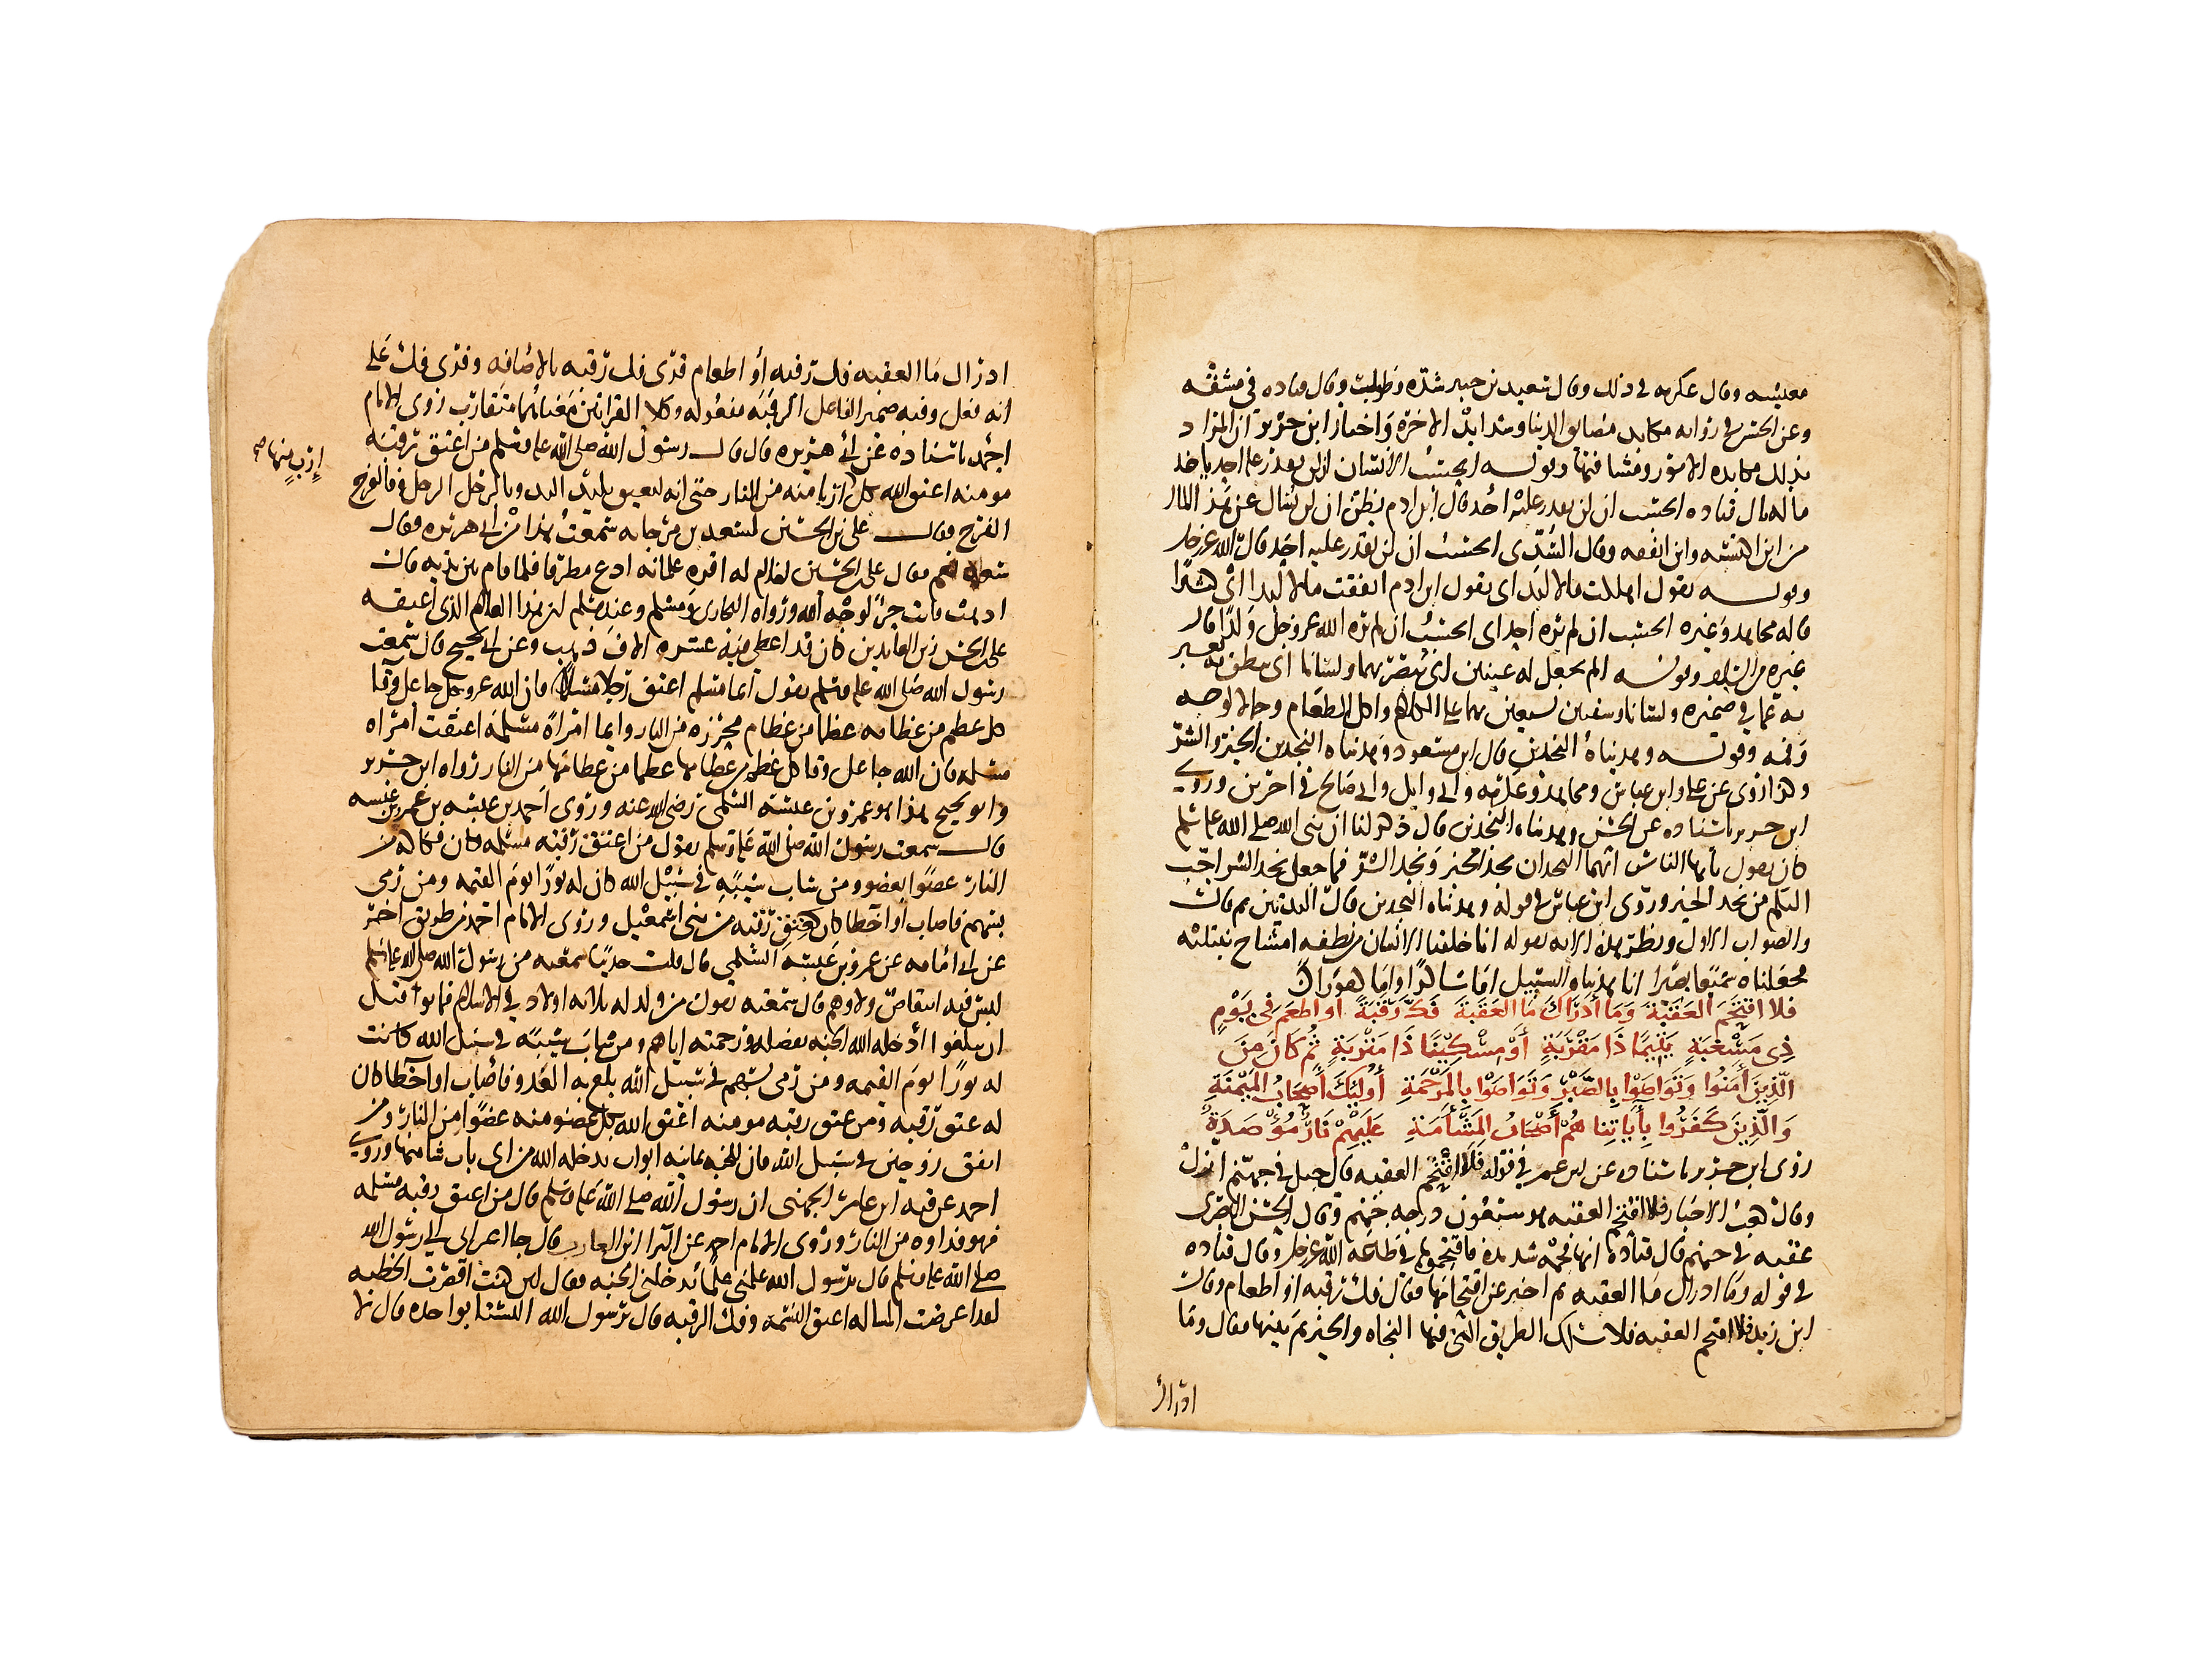 معيشه وقال عكرمه في ذلك وقال سعيد بن جبير شده وطلب وقال قتاده في مشقه
وعن الحسن في روايه مكابد مضايق الدنيا وشدايد الاخره واختار ابن جرير ان المراد
بذلك مكابده الامور ومشاقها وقوله ايحسب الانسان ان لن يقدر عليه احد ياخذ
ماله قال قتاده ايحسب ان لن يقدر عليه احد قال ابن ادم يظن ان لن يسال عن هذا المال
من اين اكتسبه واين انفقه وقال السدي ايحسب ان لن يقدر عليه احد قال الله عز وجل
وقوله يقول اهلكت مالا لبدا اي يقول ابن ادم انفقت مالا لبدا اي كثيرا
قاله مجاهد وغيره ايحسب ان لم يره احد اي ايحسب ان لم يره الله عز وجل وكذا قال
غيره من السلف وقوله الم نجعل له عينين اي يبصر بهما ولسانا اي ينطق به فيعبر
به عما في ضميره ولسانا وشفتين يستعين بهما على الكلام واكل الطعام وجمالا لوجهه
وفمه وقوله وهديناه النجدين قال ابن مسعود وهديناه النجدين الخير والشر
وكذا روى عن علي وابن عباس ومجاهد وعكرمه وابي وايل وابي صالح في اخرين وروى
ابن جرير باسناده عن الحسن وهديناه النجدين قال ذكر لنا ان نبي الله صلى الله عليه وسلم
كان يقول يا ايها الناس انهما النجدان نجد الخير ونجد الشر فما جعل نجد الشر احب
اليكم من نجد الخير وروى ابن عباس في قوله وهديناه النجدين قال الثديين ثم قال
والصواب الاول ونظير هذه الايه قوله انا خلقنا الانسان من نطفه امشاج نبتليه
فجعلناه سميعا بصيرا انا هديناه السبيل اما شاكرا واما كفورا
فَلا اقْتَحَمَ العَقَبَةَ وَمَا أَدْرَاكَ مَا العَقَبَةُ فَكُّ رَقَبَةٍ أَو اطعَم فِي يَوْمٍ
ذِي مَسْغَبَةٍ يَتِيمًا ذَا مَقْرَبَةٍ أَوْ مِسْكِينًا ذَا مَتْرَبَةٍ ثُمَّ كَانَ مِنَ
الَّذِينَ أَمَنُوا وَتَوَاصَوْا بِالصَّبْرِ وَتَوَاصَوْا بِالمَرْحَمَةِ أُولَئِكَ أَصْحَابُ المَيْمَنَةِ
وَالَّذِينَ كَفَرُوا بِأَيَاتِنا هُمْ أَصْحَابُ المَشْأَمَةِ عَلَيْهِمْ نَارٌ مُؤْصَدَةٌ
روى ابن جرير باسناده عن ابن عمر في قوله فلا اقتحم العقبه قال جبل في جهنم ازل
وقال كعب الاحبار فلا اقتحم العقبه هو سبعون درجه في جهنم وقال الحسن البصري
عقبه في جهنم قال قتاده انها قحمه شديده فاقتحموها بطاعه الله عز وجل وقال قتاده
في قوله وما ادراك ما العقبه ثم اخبر عن اقتحامها فقال فك رقبه او اطعام وقال
ابن زيد فلا اقتحم العقبه افلا سلك الطريق التي فيها النجاه والخير ثم بينها فقال وما
ادراك
ادراك ما العقبه فك رقبه أو اطعام قرى فك رقبه بالاضافه وقرى فك على
انه فعل وفيه ضمير الفاعل الرقبه مفعوله وكلا القراتين معناهما متقارب روى الامام
احمد باسناده عن ابي هريره قال قال رسول الله صلى الله عليه وسلم من اعتق رقبه
إرْبٍ منها صح
مومنه اعتق الله بكل اربا منه من النار حتى انه ليعتق باليد اليد وبالرجل الرجل وبالفرج
الفرج فقال علي بن الحسين لسعيد بن مرجانه سمعت هذا من ابي هريره فقال
سعيد نعم فقال علي بن الحسين لغلام له افره غلمانه ادع مطرفا فلما قام بين يديه قال
اذهب فانت حر لوجه الله ورواه البخاري ومسلم وعند مسلم ان هذا الغلام الذي اعتقه
علي بن الحسين زين العابدين كان قد اعطي فيه عشره الاف درهم وعن ابي نجيح قال سمعت
رسول الله صلى الله عليه وسلم يقول أيما مسلم اعتق رجلا مسلما فان الله عز وجل جاعل وقا
كل عظم من عظامه عظما من عظام محرره من النار وايما امراة مسلمه اعتقت امراه
مسلمه فان الله جاعل وقا كل عظم من عظامها عظما من عظامها من النار رواه ابن جرير
وابو نجيح هذا هو عمرو بن عبسه السلمي رضي الله عنه وروى احمد عن عمرو بن عبسه
قال سمعت رسول الله صلى الله عليه وسلم يقول من اعتق رقبه مسلمه كان فكاكه من
النار عضوا بعضو ومن شاب شيبه في سبيل الله كان له نورا يوم القيمه ومن رمى
بسهم فاصاب او اخطا كان كعتق رقبه من بني اسمعيل وروى الامام احمد من طريق اخر
عن ابي امامه عن عمرو بن عبسه السلمي قال قلت حديثا سمعته من رسول الله صلى الله عليه وسلم
ليس فيه انتقاص ولا وهم قال سمعته يقول من ولد له ثلاثه اولاد في الاسلام فماتوا قبل
ان يبلغوا ادخله الله الجنه بفضله ورحمته اياهم ومن شاب شيبه في سبيل الله كانت
له نورا يوم القيمه ومن رمى بسهم في سبيل الله بلغ به العدو فاصاب او اخطا كان
له عتق رقبه ومن عتق رقبه مومنه اعتق الله بكل عضو منه عضوا من النار ومن
انفق زوجين في سبيل الله فان للجنه ثمانيه ابواب يدخله الله من اي باب شا منها وروى
احمد عن عقبه ابن عامر الجهني ان رسول الله صلى الله عليه وسلم قال من اعتق رقبه مسلمه
فهو فداوه من النار وروى الامام احمد عن البرا ابن العازب قال جا اعرابي الى رسول الله
صلى الله عليه وسلم قال يرسول الله علمني عملا يدخلني الجنه فقال لين كنت اقصرت الخطبه
لقد اعرضت المساله اعتق النسمه وفك الرقبه قال يرسول الله اليستا بواحده قال لا